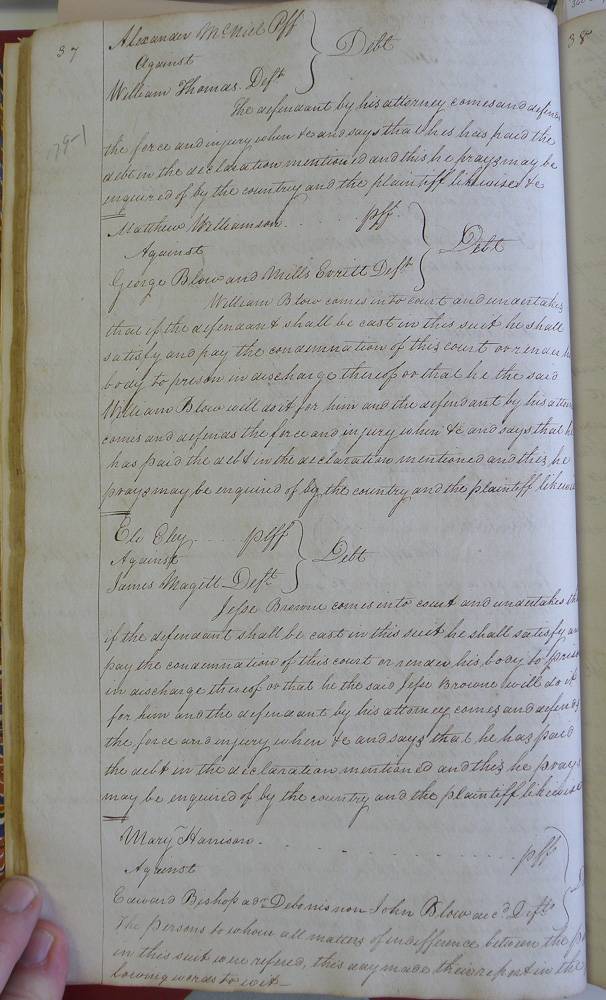 37
38
Alexander McNiel Pff
Against
Debt
William Thomas. Deft
The defendant by his attorney comes and defends
the force and injury when &c and says that he has paid the
debt in the declaration mentioned and this he prays may be
enquired of by the country and the plaintiff likewise &c
1791
Matthew Williamson. . . . . pff.
Against
Debt
George Blow and Mills Evritt Deft
William Blow comes into court and undertakes
that if the defendant shall be cast in this suit he shall
satisfy and pay the condemnation of this court or render h
body to prison in discharge thereof or that he the said
William Blow will do it for him and the defendant by his attorn
comes and defends the force and injury when &c and says that h
has paid the debt in the declaration mentioned and this he
prays may be enquired of by the country and the plaintiff likewise
Eli Eley . . . . plff
Against
Debt
James Magett Deft
Jesse Browne comes into court and undertakes th
if the defendant shall be cast in this suit he shall satisfy an
pay the condemnation of this court or render his body to priso
in discharge thereof or that he the said Jesse Browne will do it
for him and the defendant by his attorney comes and defends
the force and injury when &c and says that he has paid
the debt in the declaration mentioned and this he prays
may be enquired of by the country and the plaintiff likewise
Mary Harrison. . . . . . . . pff
Against
Edward Bishop adr. Debonis non John Blow decd Deft.
The Persons to whom all matters of indifference between the p
in this suit were refered, this day made their report in the
lowing words to wit